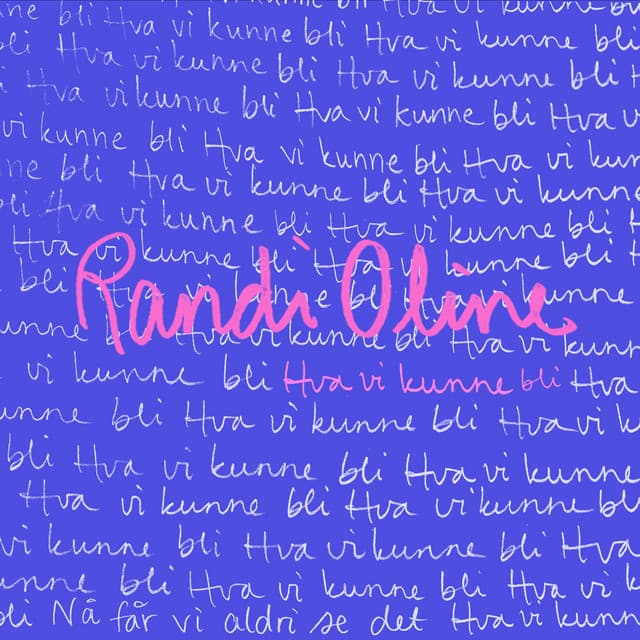 bli Hva vi kunne bli Hva vi kunne bli
bli Hva vi kunne bli Hva vi kunne bli
bli Hva vi kunne bli Hva vi kunne bli
Hva vi kunne bli Hva vi kunne bli Hva
vi kunne bli Hva vi kunne bli Hva vi
bli Hva vi kunne bli Hva vi kunne
bli Hva vi kunne bli Hva vi kunne bli
Hva vi kunne bli Hva vi kunne bli
Randi Oline
bli Hva vi kunne bli Hva vi kunne
bli Hva vi kunne bli Hva vi
vi kunne bli Hva vi kunne bli Hva
bli Hva vi kunne bli Hva vi
bli Hva vi kunne bli Hva vi kunne
Hva vi kunne bli Hva vi kunne bli
vi kunne bli Hva vi kunne bli Hva
bli Hva vi kunne bli Hva vi
bli Nå får vi aldri se det Hva vi